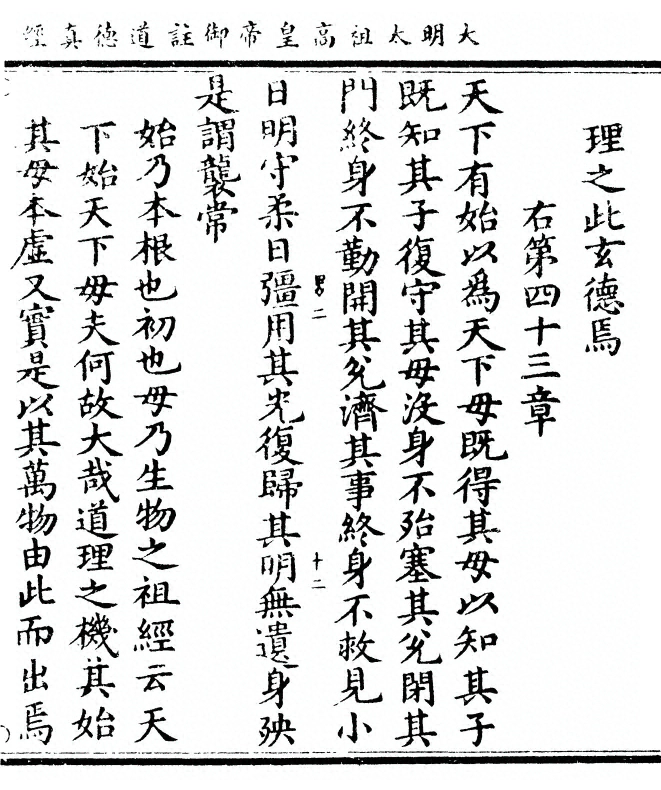 大明太祖高皇帝御註道德真經
理之此玄德焉
右第四十三章
天下有始以爲天下母既得其母以知其子
既知其子復守其母沒身不殆塞其兌閉其
門終身不勤開其兌濟其事終身不救見小
男二
十二
曰明守柔曰彊用其光復歸其明無遺身殃
是謂襲常
始乃本根也初也母乃生物之祖經云天
下始天下母夫何故大哉道理之機其始
其母本虛又實是以其萬物由此而出焉